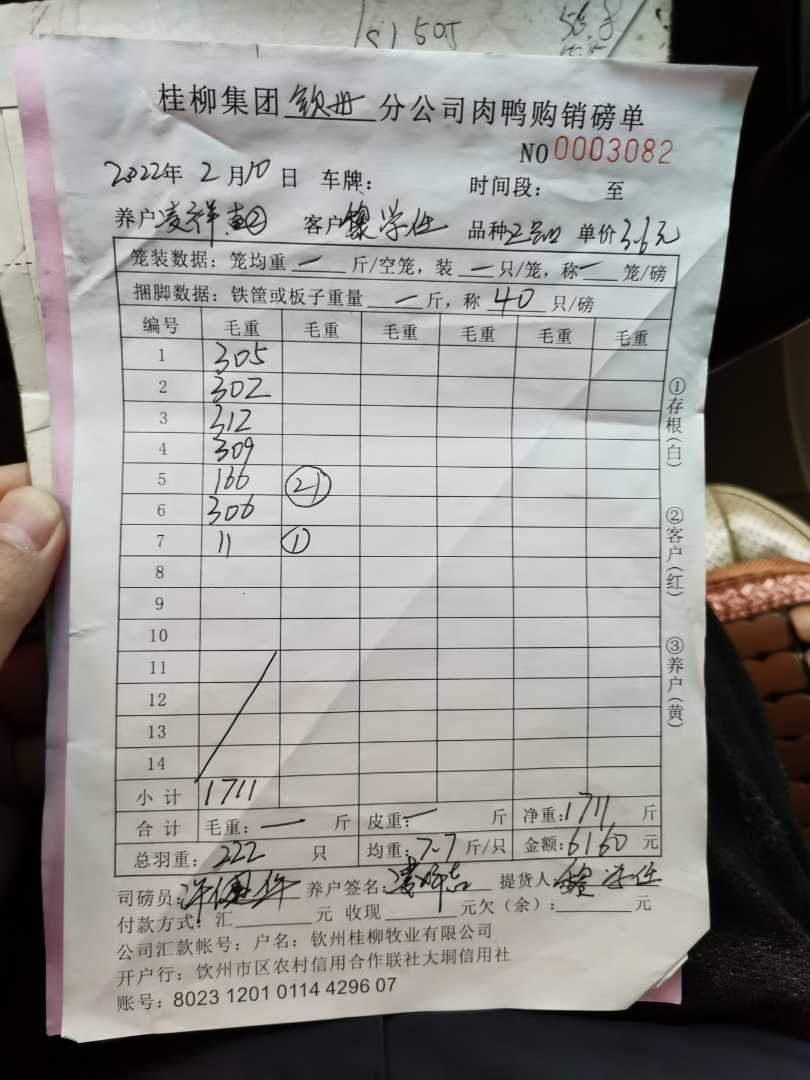 151505
桂柳集团钦州分公司肉鸭购销磅单
NO 0003082
2022年2月10日 车牌: 时间段: 至
养户凌祥 ② 客户 学任 品种 单价3.6元
笼装数据: 笼均重 一 斤/空笼, 装 一 只/笼, 称 一 笼/磅
捆脚数据: 铁筐或板子重量 一 斤, 称 40 只/磅
编号 毛重 毛重 毛重 毛重 毛重 毛重
1 305
2 302
3 312
4 309
5 166 (21)
6 306
7 11 ①
8
9
10
11
12
13
14
小计 1711
合计 毛重: 一 斤 皮重: 一 斤 净重: 1711 斤
总羽重: 222 只 均重: 7.7 斤/只 金额: 6160 元
司磅员: 养户签名: 提货人: 学任
付款方式: 汇 元 收现 元欠(余): 元
公司汇款帐号: 户名: 钦州桂柳牧业有限公司
开户行: 钦州市区农村信用合作联社大垌信用社
账号: 8023 1201 0114 4296 07
①存根(白)
②客户(红)
③养户(黄)